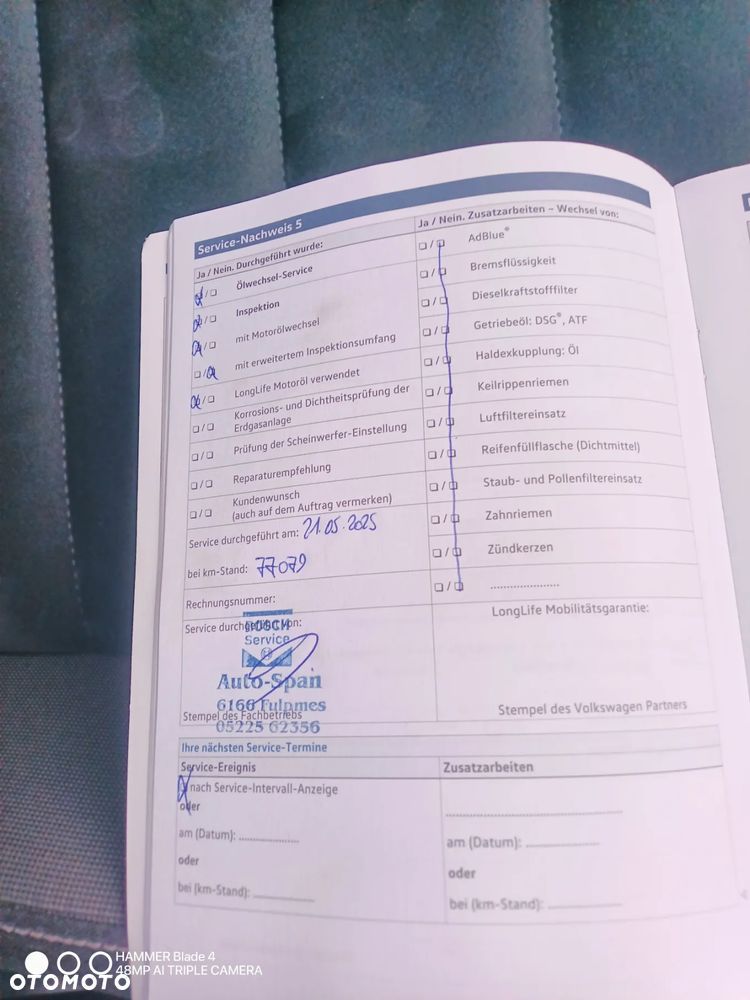 Service-Nachweis 5
Ja / Nein. Durchgeführt wurde:
Ölwechsel-Service
Inspektion
mit Motorölwechsel
mit erweitertem Inspektionsumfang
LongLife Motoröl verwendet
Korrosions- und Dichtheitsprüfung der
Erdgasanlage
Prüfung der Scheinwerfer-Einstellung
Reparaturempfehlung
Kundenwunsch
(auch auf dem Auftrag vermerken)
Service durchgeführt am: 21.05.2025
bei km-Stand: 77079
Rechnungsnummer:
Service durchgeführt von:
BOSCH
Service
Auto-Span
6166 Fulpmes
Stempel des Fachbetriebs
05225 62356
Ja / Nein. Zusatzarbeiten – Wechsel von:
AdBlue®
Bremsflüssigkeit
Dieselkraftstofffilter
Getriebeöl: DSG®, ATF
Haldexkupplung: Öl
Keilrippenriemen
Luftfiltereinsatz
Reifenfüllflasche (Dichtmittel)
Staub- und Pollenfiltereinsatz
Zahnriemen
Zündkerzen
LongLife Mobilitätsgarantie:
Stempel des Volkswagen Partners
Ihre nächsten Service-Termine
Service-Ereignis
nach Service-Intervall-Anzeige
oder
am (Datum):
oder
bei (km-Stand):
Zusatzarbeiten
am (Datum):
oder
bei (km-Stand):
HAMMER Blade 4
48MP AI TRIPLE CAMERA
OTOMOTO